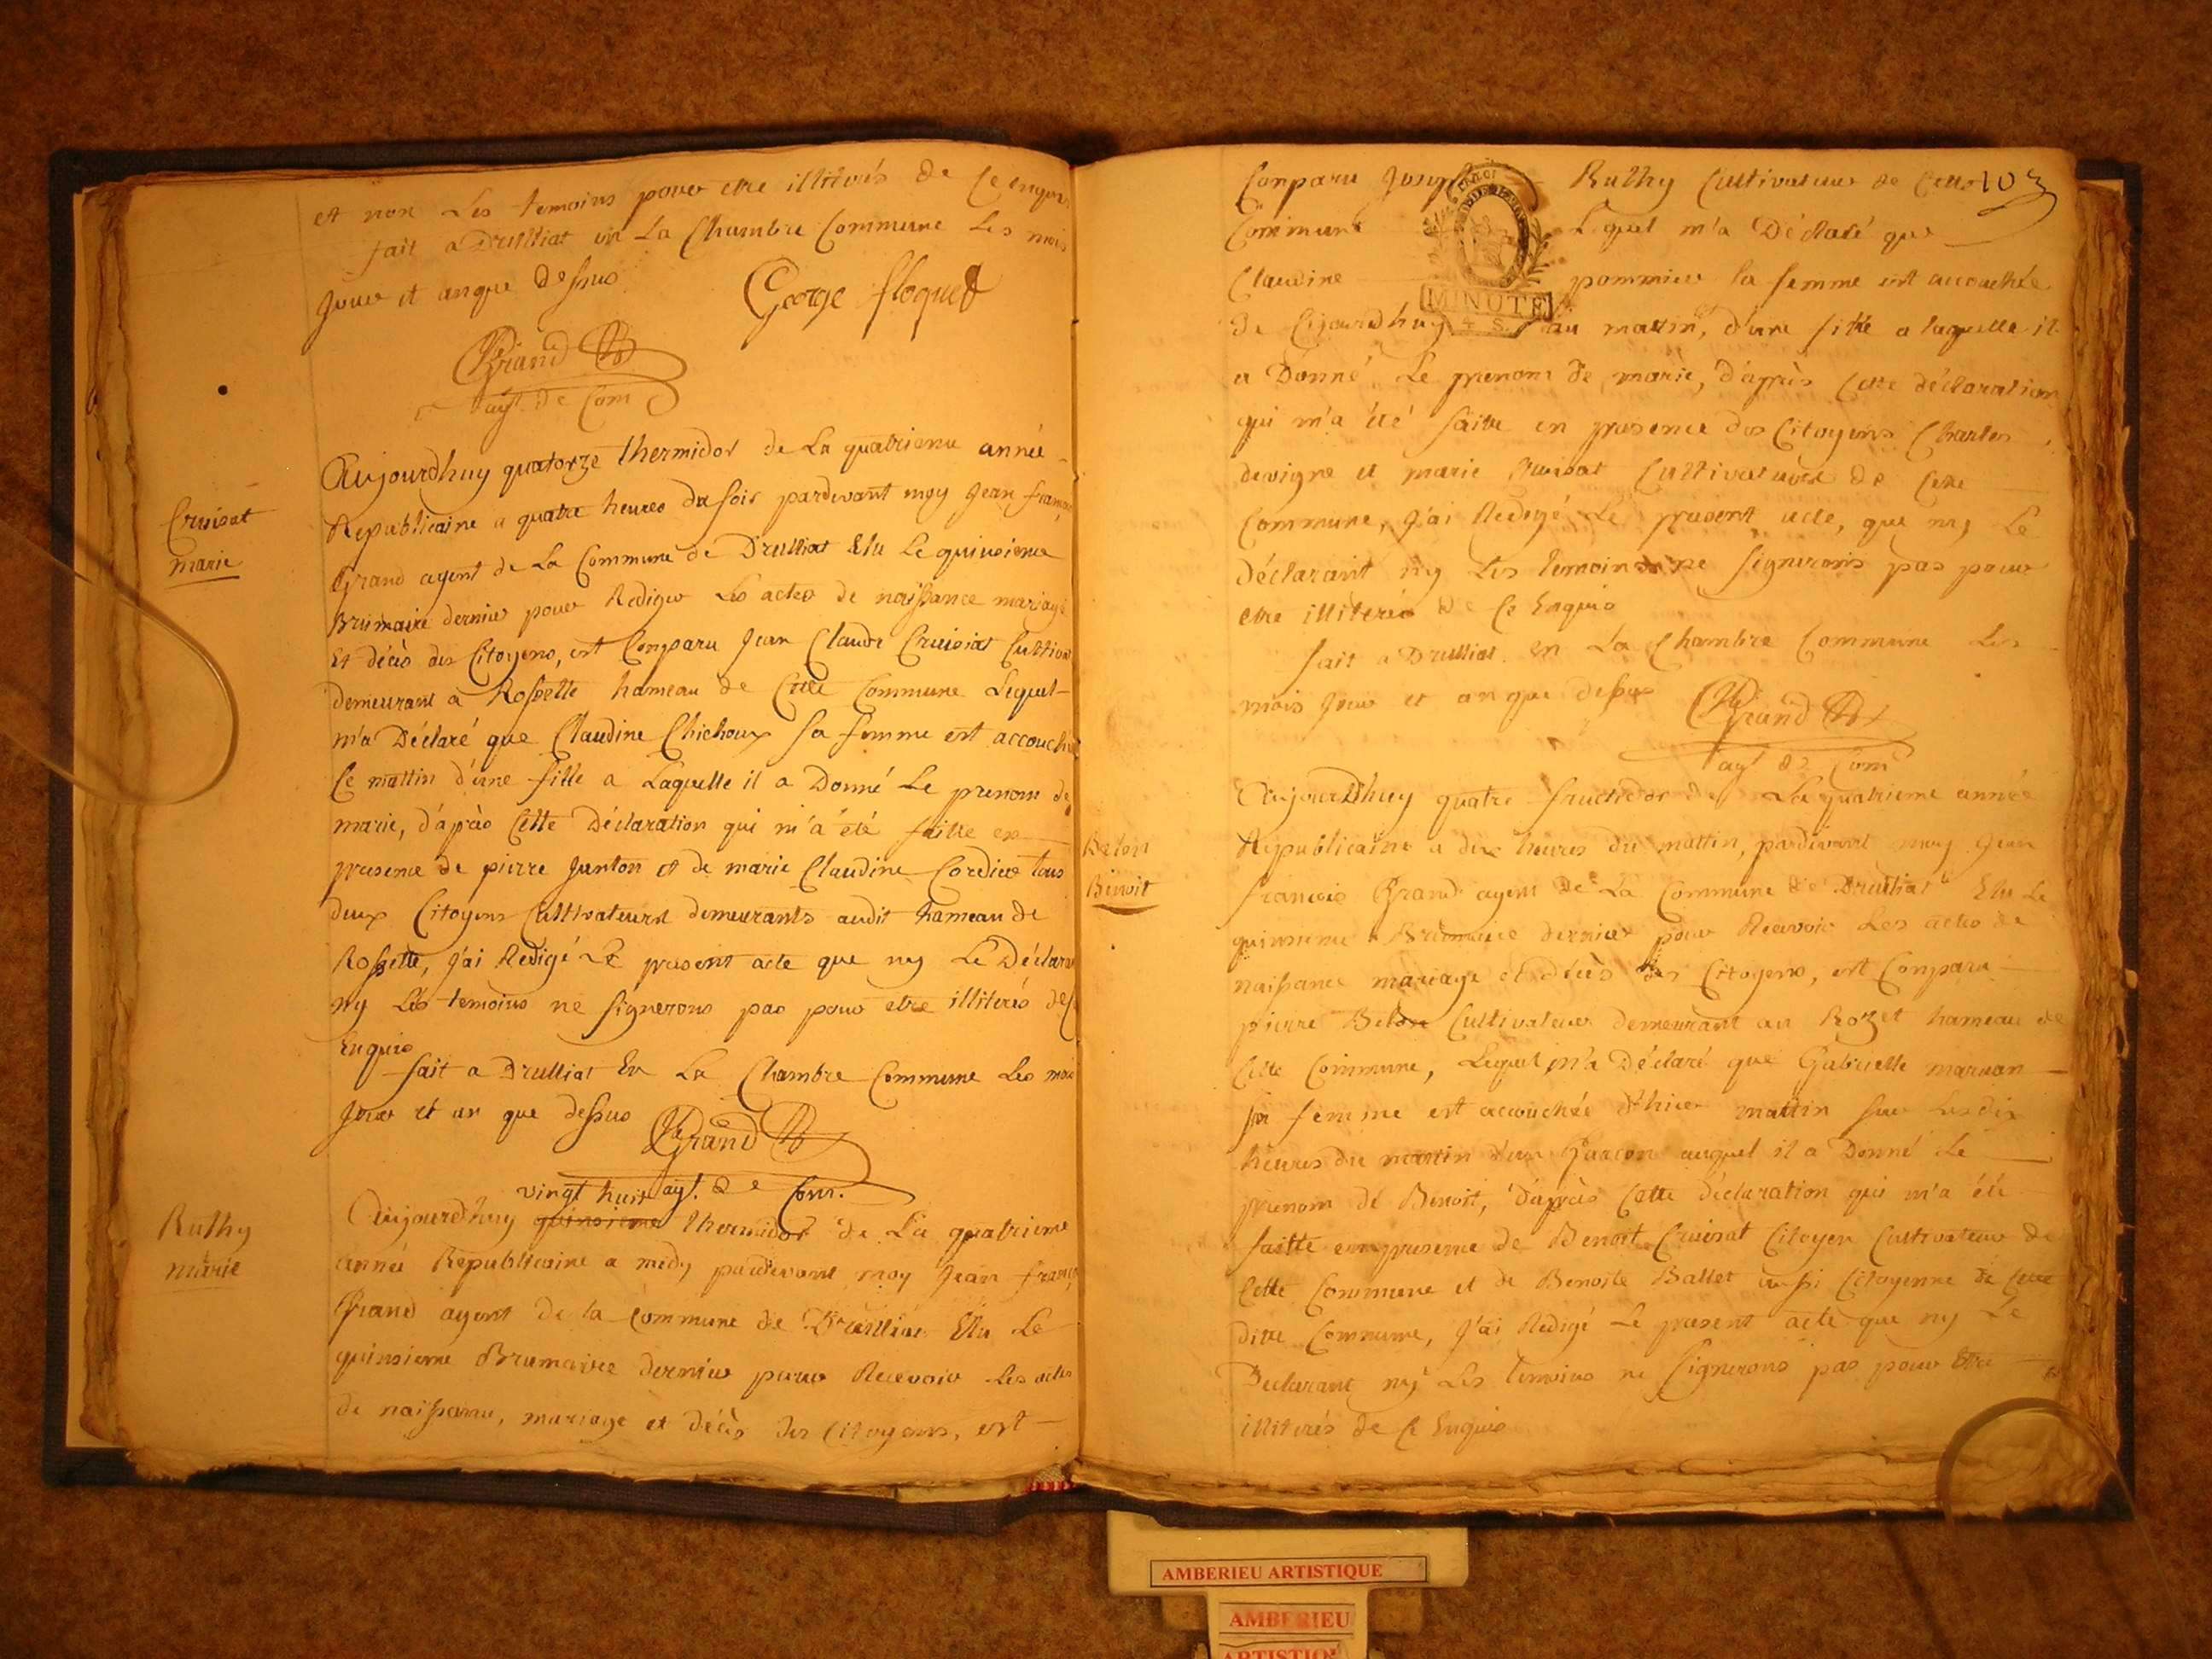 et non les temoins pour etre illiterés de ce enquis
fait a Drulliat en la Chambre Commune les mois
jour et an que dessus
George floquet
Grand
agt. de Com
Cruisat
marie
Aujourdhuy quatorze thermidor de la quatrieme année
Republicaine a quatre heures du soir pardevant moy Jean francois
Grand agent de la Commune de Drulliat Elu le quinsieme
Brumaire dernier pour Rediger les actes de naissance mariage
Et décès des Citoyens, est Conparu Jean Claude Cruisiat Cultiva
demeurant a Rossette hameau de Cette Commune Lequel
m'a Déclaré que Claudine Chichoux sa femme est accouchée
Ce mattin d'une fille a Laquelle il a Donné Le prenom de
marie, d'après Cette Déclaration qui m'a été faitte en
presence de pierre Janton et de marie Claudine Cordier tous
deux Citoyens Cultivateurs demeurants audit hameau de
Rossette, j'ai Redigé Le present acte que ny Le Déclara
ny Les temoins ne signerons pas pour etre illiterés de ce
Enquis
fait a Drulliat En La Chambre Commune Les mois
jour et an que dessus
Grand
agt. de Com.
Ruthy
marie
vingt huit
Aujourdhuy quinsieme thermidor de La quatrieme
année Republicaine a midy pardevant moy Jean francois
Grand agent de la Commune de Drulliat Elu Le
quinsieme Brumaire dernier pour Recevoir Les actes
de naissance, mariage et décès des Citoyens, est
103
Conparu Joseph Ruthy Cultivateur de Cette
Commune Lequel m'a Déclaré que
Claudine pommier sa femme est accouchée
MINUTE
de Cejourdhuy au mattin, d'une fille a laquelle il
a Donné Le prenom de marie, d'après Cette déclaration
qui m'a été faitte en presence des Citoyens Charles
devigne et marie Cruisat Cultivateurs de Cette
Commune, j'ai Redigé Le present acte, que ny Le
Déclarant ny Les temoins ne signerons pas pour
etre illiterés de Ce Enquis
fait a Drulliat en La Chambre Commune Les
mois jour et an que dessus
Grand
agt de Com
Belon
Binoit
Aujourdhuy quatre fructidor de La quatrieme année
Republicaine a dix heures du mattin, pardevant moy Jean
francois Grand agent de La Commune de Drulliat Elu Le
quinsieme Brumaire dernier pour Recevoir Les actes de
naissance mariage et décès des Citoyens, est Conparu
pierre Belon Cultivateur demeurant au Rozet hameau de
Cette Commune, Lequel m'a Déclaré que Gabrielle
sa femme est accouchée d'hier mattin sur Les dix
heures du mattin d'un Garcon auquel il a Donné Le
prenom de Benoit, d'après Cette déclaration qui m'a été
faitte en presence de Benoit Cruisat Citoyen Cultivateur de
Cette Commune et de Benoite Ballet aussi Citoyenne de Cette
ditte Commune, j'ai Redigé Le present acte que ny Le
Declarant ny Les temoins ne signerons pas pour Etre
illiterés de Ce Enquis
AMBERIEU ARTISTIQUE
AMBERIEU
ARTISTIQ